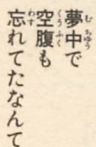 夢中で
空腹も
忘れてたなんて